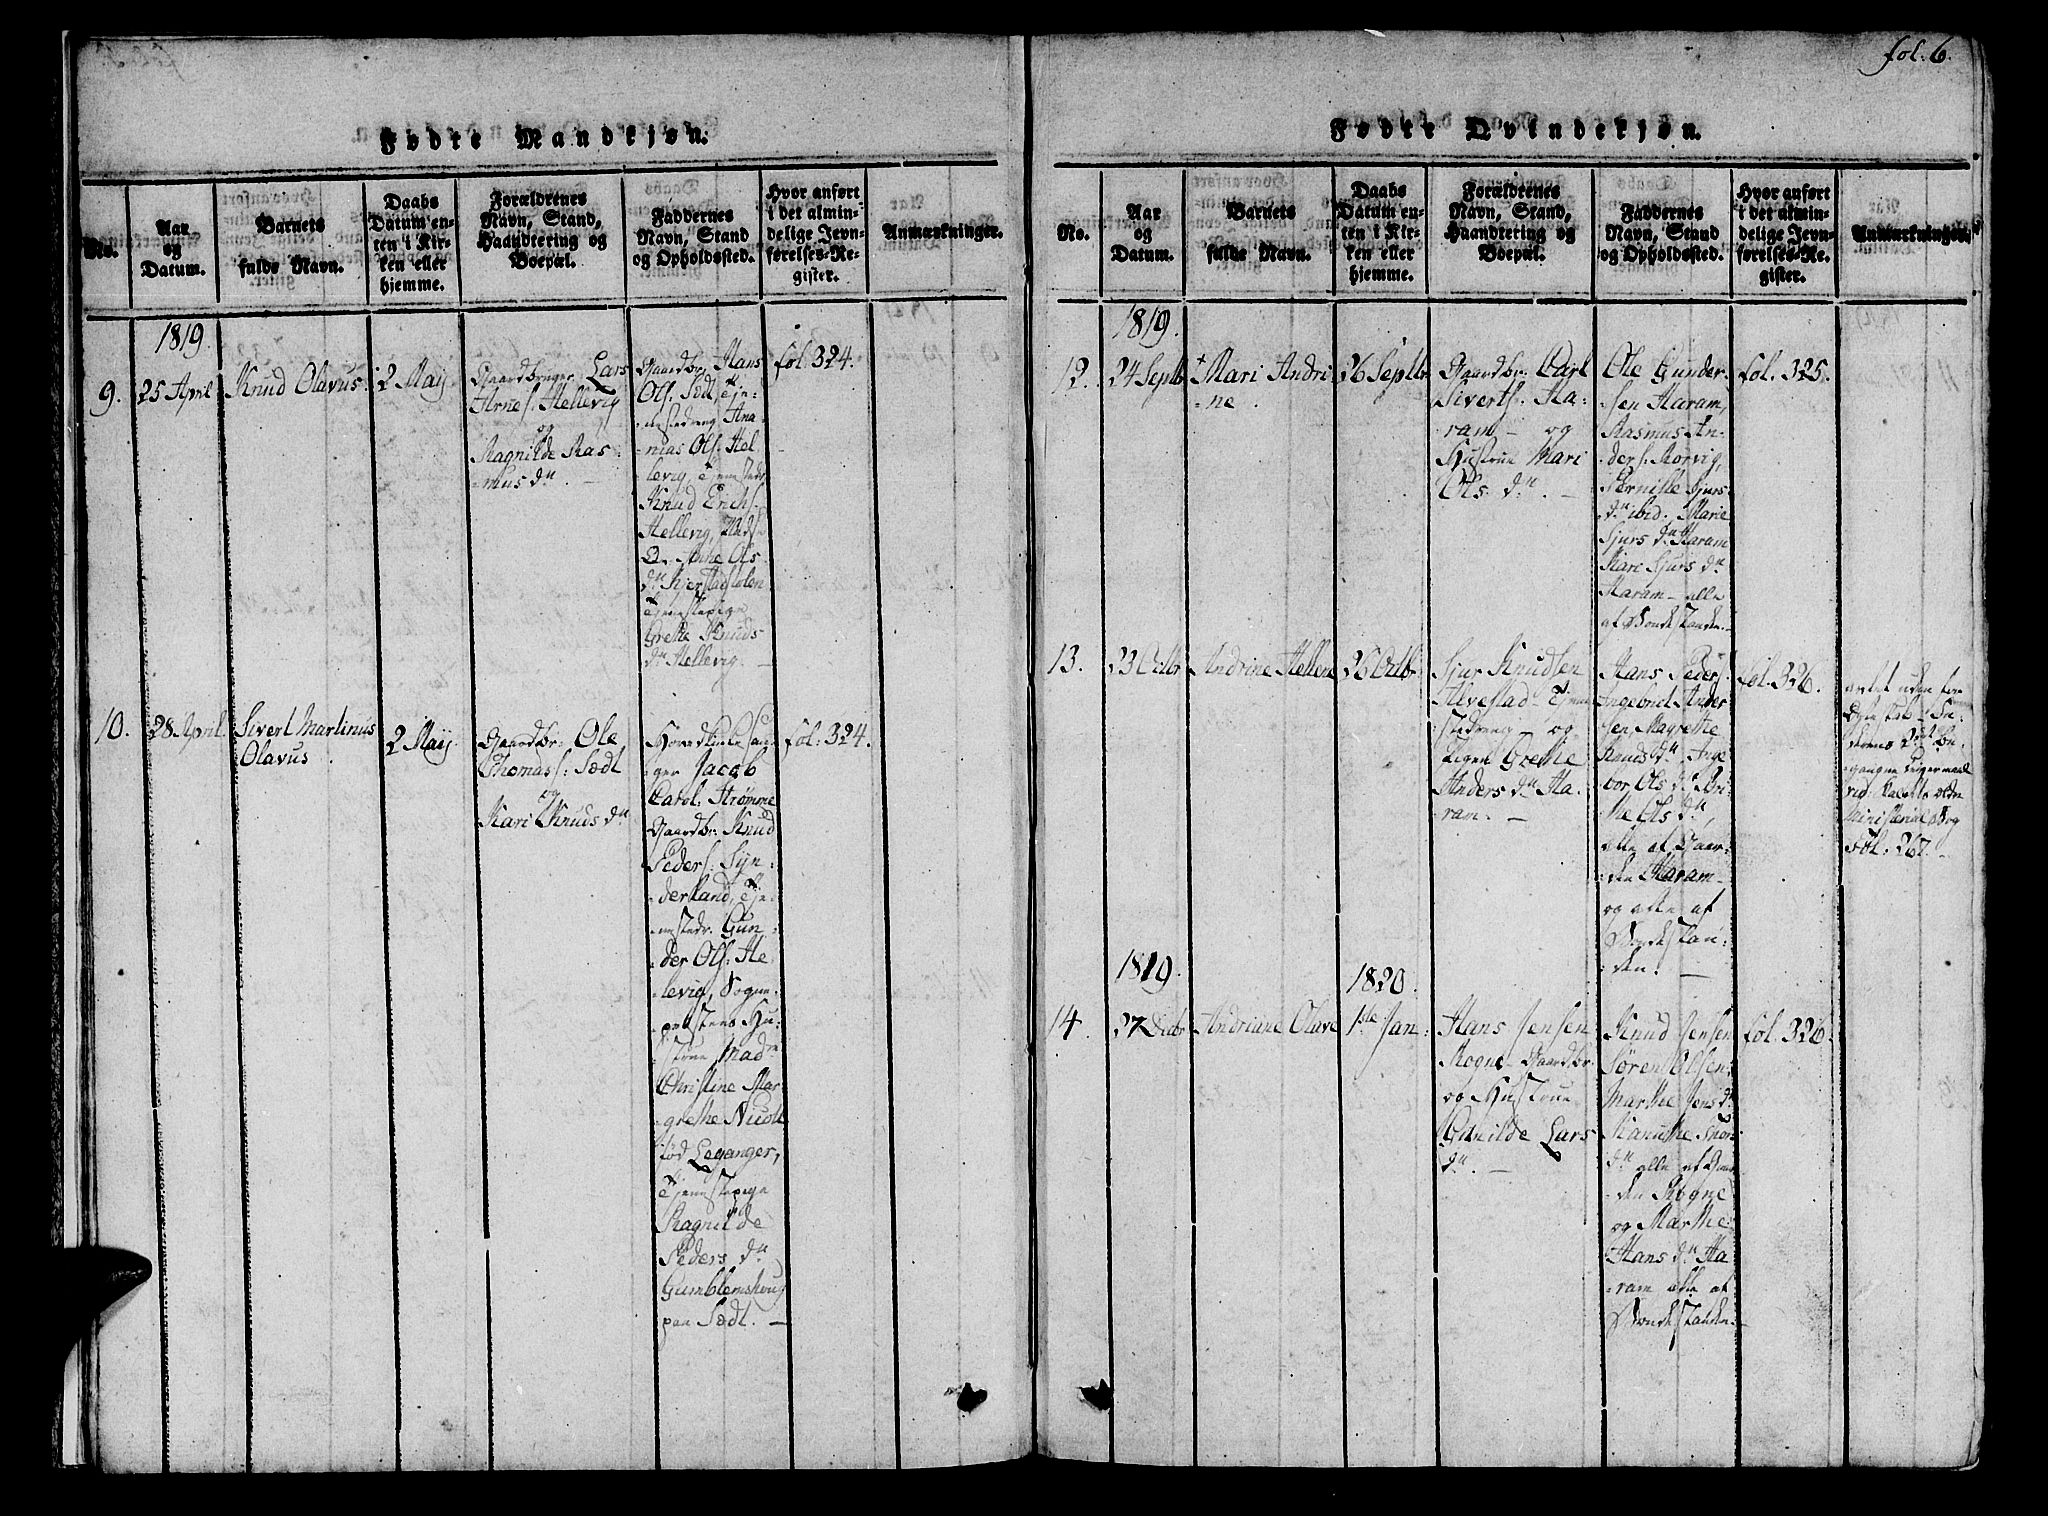 fol. 6.
Fødte Mandkjøn.
No.
Aar
og
Datum.
Barnets
fulde Navn.
Daabs
Datum en-
ten i Kir-
ken eller
hjemme.
Forældrenes
Navn, Stand,
Haandtering og
Boepæl.
Faddernes
Navn, Stand
og Opholdssted.
Hvor anført
i det almin-
delige Jevn-
førelses-Re-
gister.
Anmærkninger.
1819
9.
25 April
Knud Olavus.
2 May
Gaardbruger Lars
Arnes. Hellevig
og
Ragnilde Ras-
mus dr.
Gaardbr. Hans
Ols. Sætl, Tje-
nestedreng Ana-
nias Ols. Hel-
levig, Tjenestedr.
Knud Erichs.
Hellevig,
Ols
dr. Kjerstadholen
Tjenestepige
Grethe Knuds
dr. Hellevig.
fol. 324.
10.
28 April.
Sivert Martinus
Olavus
2 May.
Gaardbr: Ole
Thomass: Sætl
og
Kari Knuds dr.
Hovedkirkesan-
ger Jacob
Carol: Strømme
Gaardbr: Knud
Peders: Syn-
derland, Tje-
nestedr. Gun-
der Ols: He-
levig, Sogne-
præstens Hu-
strue, Mad
Christine Mar-
grethe Nicoll
fød Leganger,
Tjenestepige
Ragnilde
Peders dr.
Gumblemshoug
paa Sætl.
fol: 324.
Fødte Qvindekjøn.
No.
Aar
og
Datum.
Barnets
fulde Navn.
Daabs
Datum en-
ten i Kir-
ken eller
hjemme.
Forældrenes
Navn, Stand,
Haandtering og
Boepæl.
Faddernes
Navn, Stand
og Opholdssted.
Hvor anført
i det almin-
delige Jevn-
førelses-Re-
gister.
Anmærkninger.
1819.
12.
24 Septbr
+ Mari Andri-
ne.
26 Septbr
Gaardbr: Carl
Siverts. Ha-
ram - og
Hustrue Mari
Ols. dr.
Ole Gunder-
sen Haram,
Rasmus An-
ders: Rorvig,
Pernille Sjurs
dr. ibid. Marie
Sjurs dr. Haram
Mari Sjurs dr.
Haram - alle
af Bondestanden.
fol. 325.
13.
23 Octbr
Andrine Hellene
26 Octbr
Sjur Knudsen
Alvestad - Tjene-
stedreng og
Pigen Grethe
Anders dr. Ha-
ram.
Hans Peders.
Ingebret Ander
sen Magrethe
Knuds dr. Inge-
bor Ols dr. Bri-
the Ols dr,
alle af Gaar-
den Haram-
og alle af
Bondestan-
den.
fol. 326.
avlet uden for
Ministerial Bog
Fol: 267.
1819.
1820.
14.
27 Decbr
Andriane Olave
1ste Jan:
Hans Jensen
Rogne - Gaardbr.
og Hustrue
Gunilde Lars
dr.
Knud Jensen
Søren Olsen,
Marthe Jens dr.
dr. alle af Gaar-
den Rogne
og Marthe
Hans dr. Ha-
ram alle af
Bondestanden.
fol. 326.